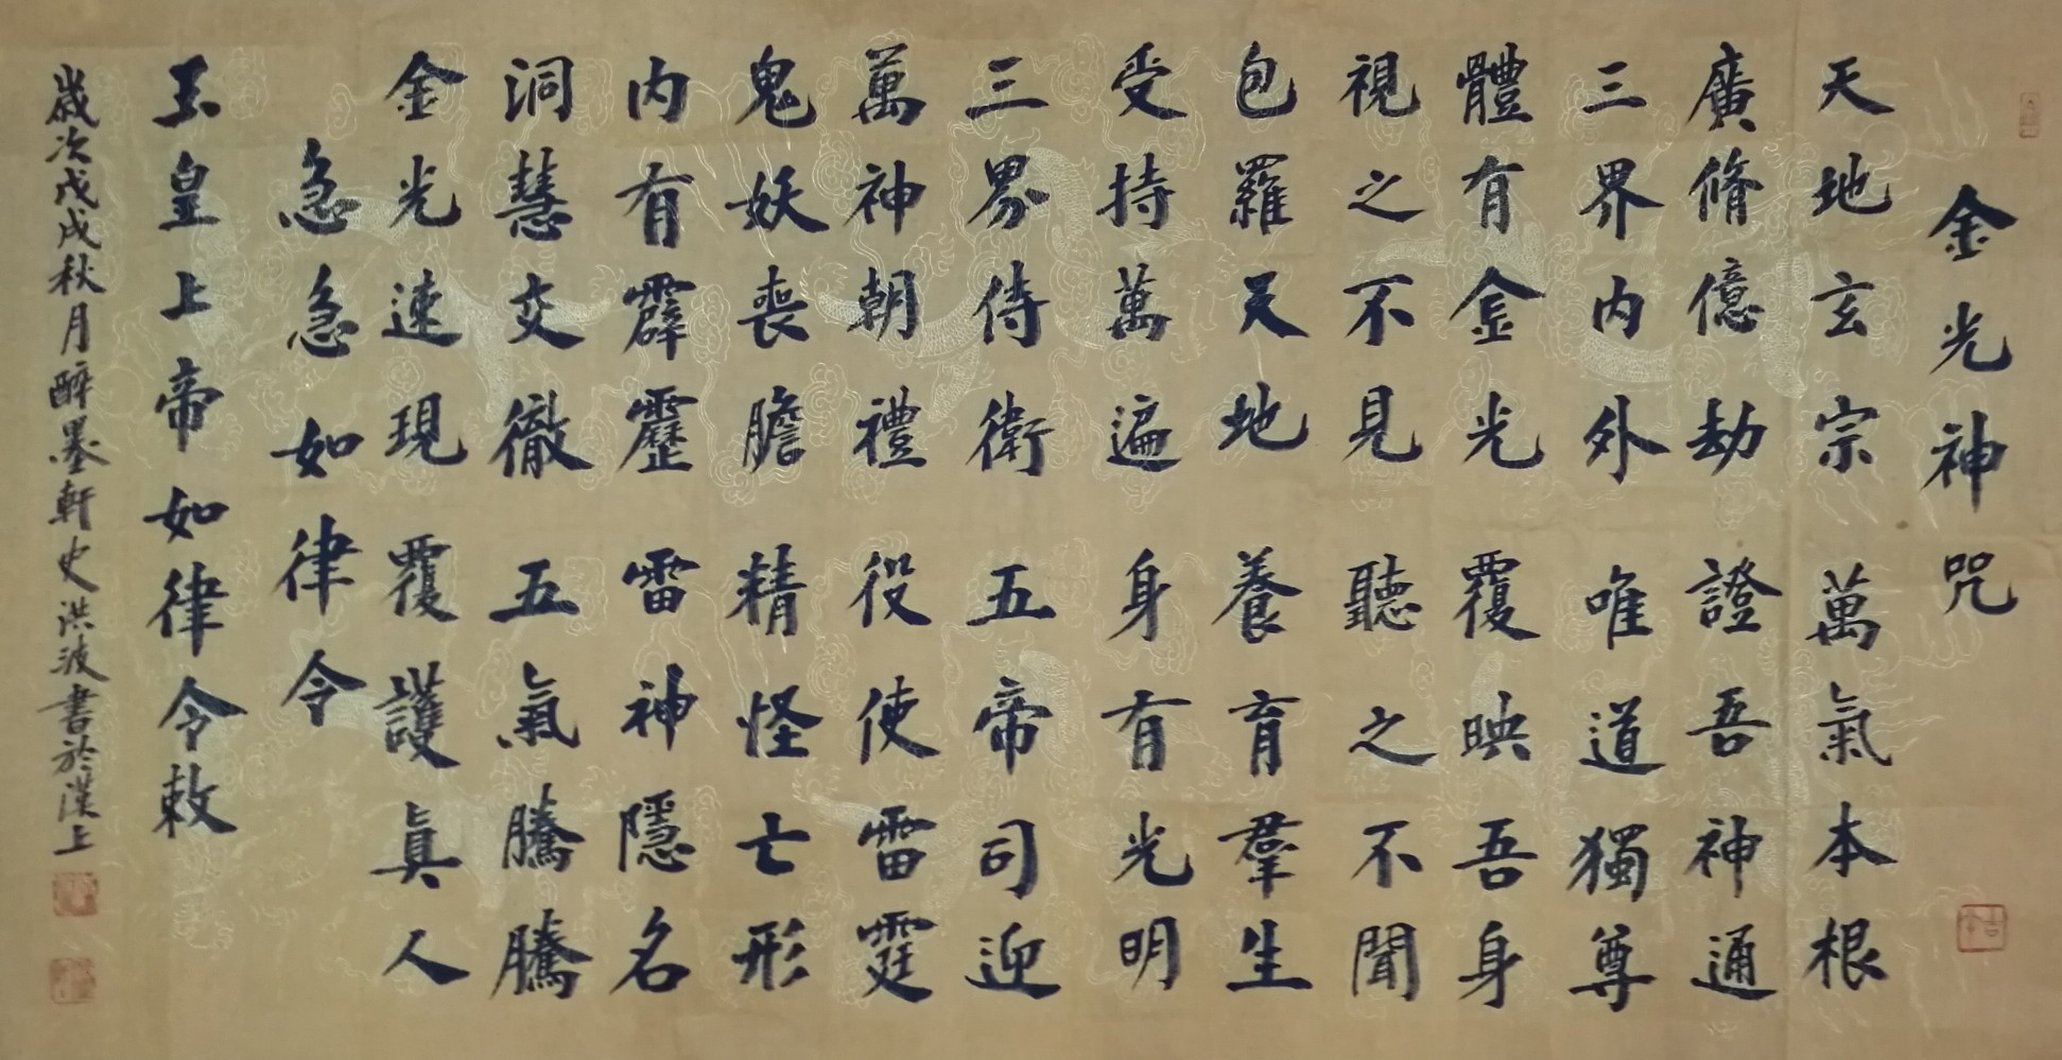 金光神咒
天地玄宗萬氣本根
廣脩億劫證吾神通
三界内外唯道獨尊
體有金光覆映吾身
視之不見聽之不聞
包羅天地養育羣生
受持萬遍身有光明
三界侍衛五帝司迎
萬神朝禮役使雷霆
鬼妖喪膽精怪亡形
内有霹靂雷神隱名
洞慧交徹五氣騰騰
金光速現覆護真人
急急如律令
玉皇上帝如律令敕
歲次戊戌秋月醉墨軒史洪波書於漢上